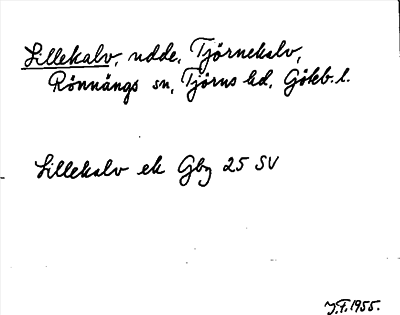 Lillekalv, udde, Tjörnekalv,
Rönnängs sn, Tjörns hd, Göteb. l.
Lillekalv ek Gbg 25 SV
J.F. 1955.